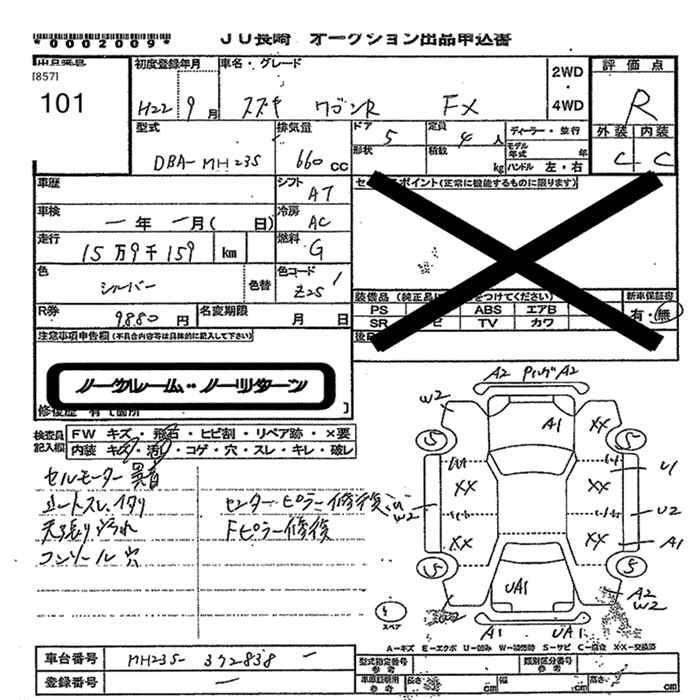 *0002009*
JU長崎 オークション出品申込書
[857]
101
初度登録年月 車名・グレード
H22 9月 スズキ ワゴンR FX
2WD
・
4WD
評価点
R
外装 内装
C C
型式 排気量 ドア 5 定員 4人 ディーラー・並行
DBA-MH23S 660cc 形状 積数 kg モデル年式 年
ハンドル 左・右
車歴 シフト AT
車検 ー年ー月( 日) 冷房 AC
走行 15万9千159 km 燃料 G
色 シルバー 色替 色コード Z2S
R券 9880円 名変期限 月 日
ポイント(正常に機能するものに限ります)
装備品(純正品 をつけてください) 新車保証書
PS ABS エアB 有・無
SR TV カワ
注意事項申告欄(不具合内容等は具体的に記入して下さい)
ノークレーム・ノーリターン
検査員記入欄 FW キズ・飛石・ヒビ割・リペア跡・×要
内装 キズ・汚れ・コゲ・穴・スレ・キレ・破レ
セルモーター 異音
シートスレ、イタリ センターピラー修復
天張り汚れ Fピラー修復
コンソール穴
A2 PハングA2
W2
A1 XX
5 5
XX XX U1
W2 U2
XX XX A1
5 5
UA1 A2
W2 W2
スペア
A1 UA1
A-キズ E-エクボ U-凹み W-補修跡 S-サビ C-腐食 XX-交換済
車台番号 MH23S-372838 ー
登録番号 ー
型式指定番号 参考 類別区分番号 参考
車庫証明用 参考 長さ cm 幅 cm 高さ cm